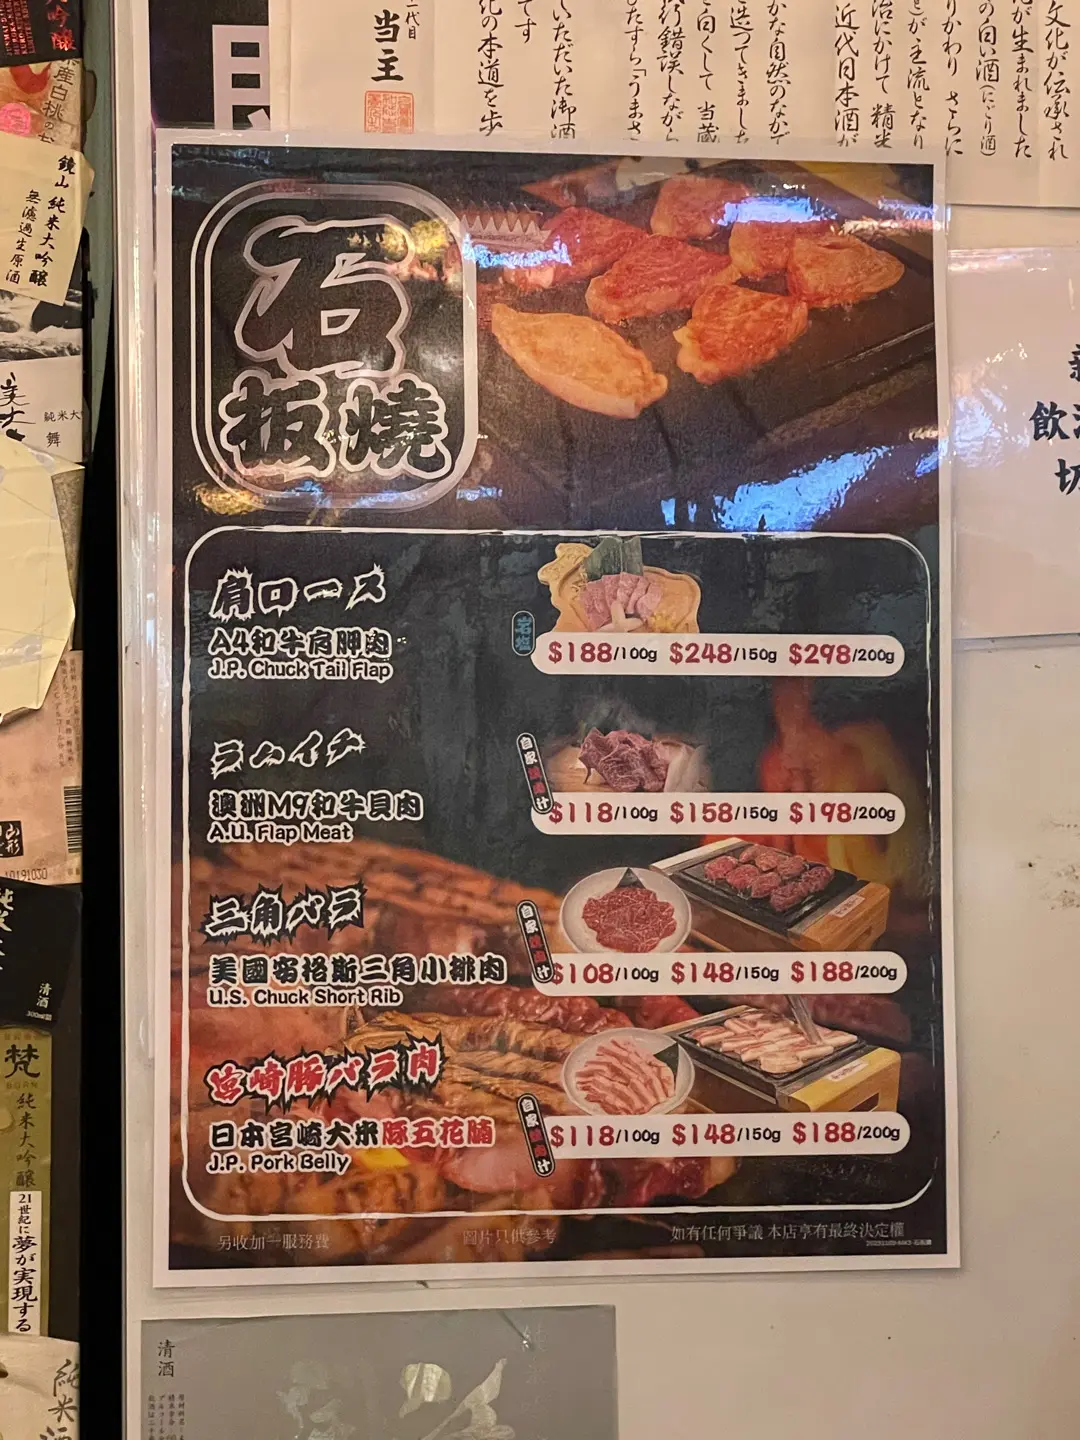 石
板燒
肩ロース
A4和牛肩胛肉
J.P. Chuck Tail Flap
岩塩
$188/100g $248/150g $298/200g
ラムイチ
澳洲M9和牛貝肉
A.U. Flap Meat
自家燒肉汁
$118/100g $158/150g $198/200g
三角バラ
美國安格斯三角小排肉
U.S. Chuck Short Rib
自家燒肉汁
$108/100g $148/150g $188/200g
宮崎豚バラ肉
日本宮崎大米豚五花腩
J.P. Pork Belly
自家燒肉汁
$118/100g $148/150g $188/200g
另收加一服務費
圖片只供参考
如有任何爭議 本店享有最終決定權
二代目
当主
文化が伝承され
が生まれました
の白い酒(にごり酒)
りかわり さらに
が、主流となり
治にかけて 精米
近代日本酒が
かな自然のなかで
造ってきました
て白くして 当蔵
行錯誤しながら
たすら「うまさ
いただいた御酒
です
化の本道を歩
飲
切
産白桃の
鏡山 純米大吟醸
無濾過生原酒
純米大
舞
山形
10191030
清酒
300ml詰
梵
純米大吟醸
21世紀に夢が実現する
純米酒
清酒